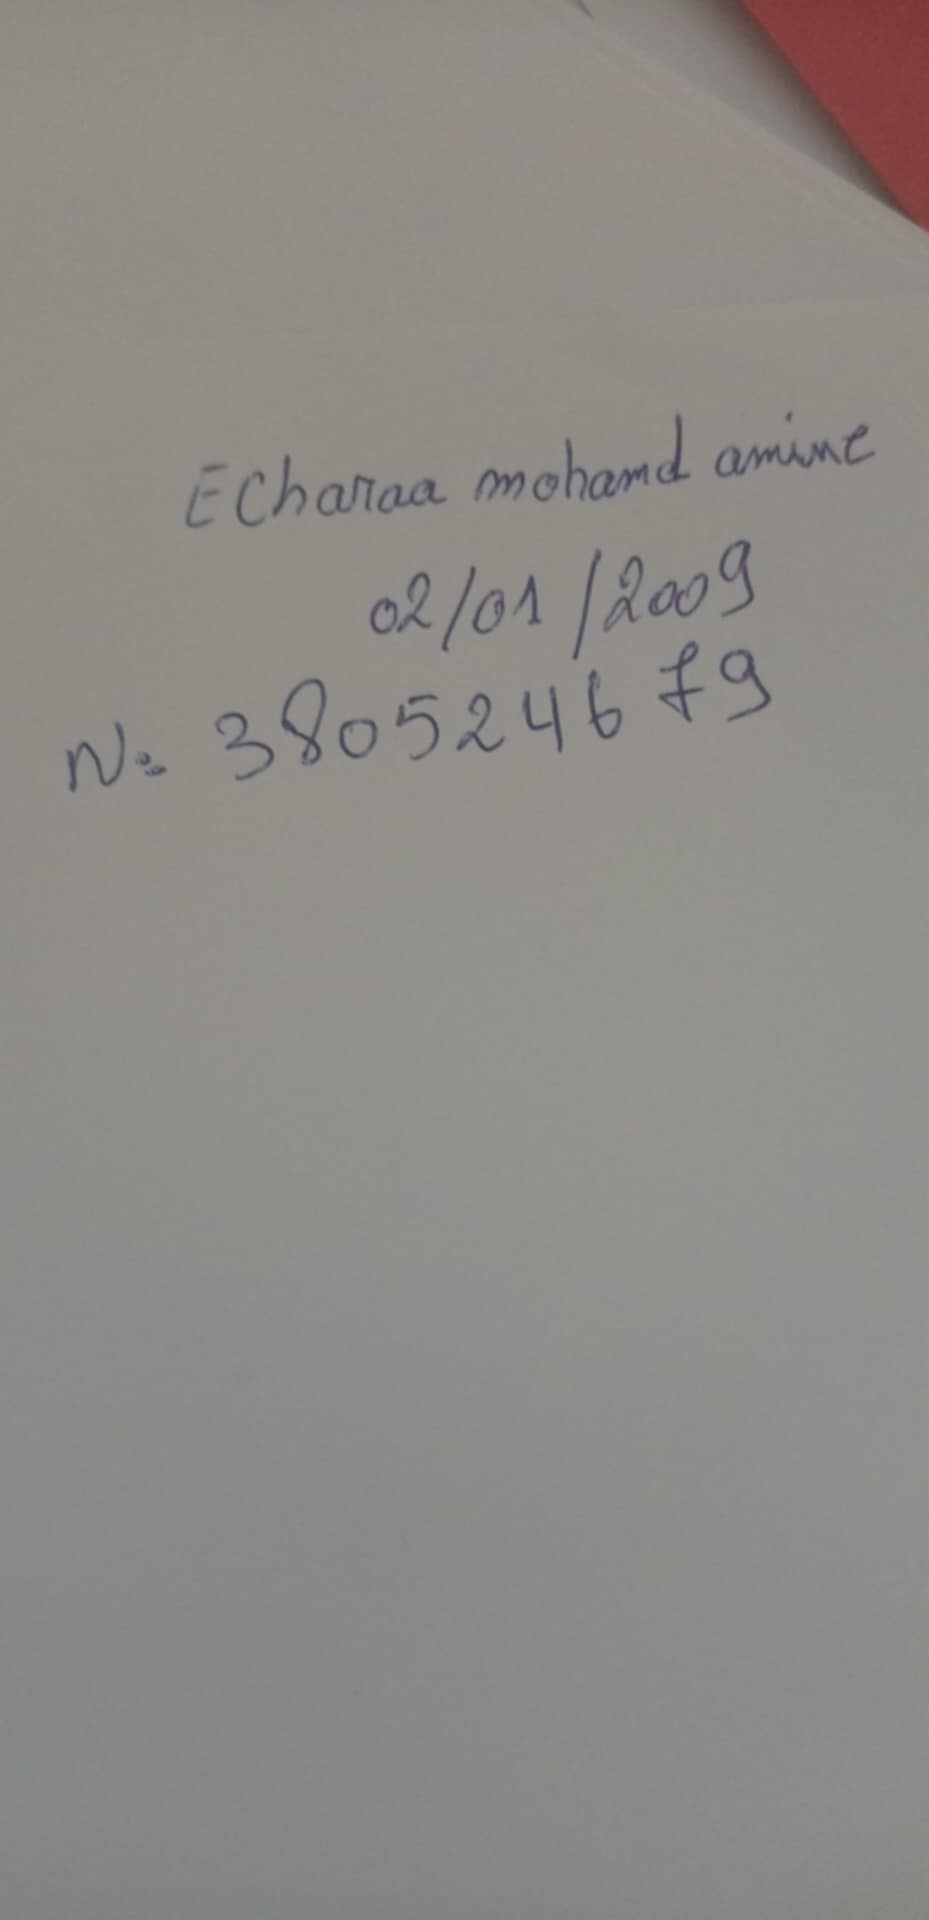 Echaraa mohamd amine
02/01/2009
N: 380524679